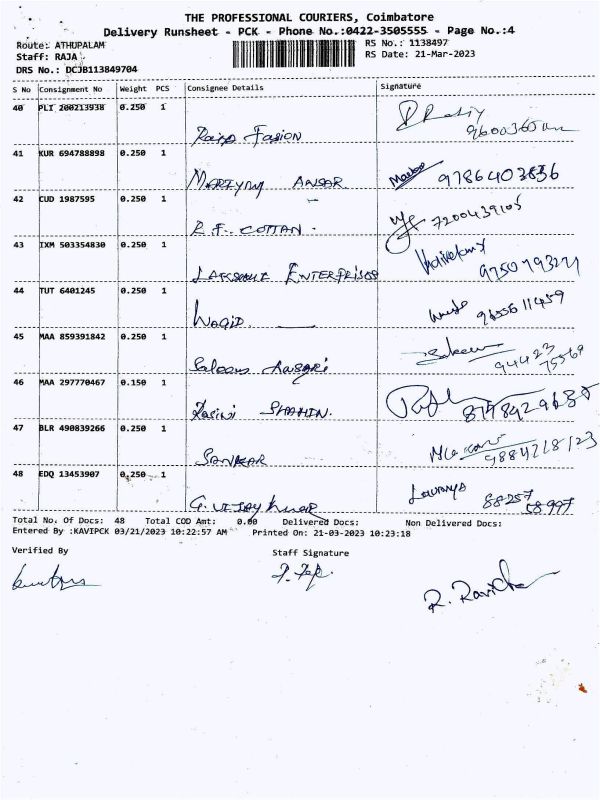 THE PROFESSIONAL COURIERS, Coimbatore
Delivery Runsheet - PCK - Phone No.:0422-3505555 - Page No.:4
Route: ATHUPALAM RS No.: 1138497
Staff: RAJA RS Date: 21-Mar-2023
DRS No.: DCJB113849704
S No Consignment No Weight PCS Consignee Details Signature
40 PLI 200213938 0.250 1
Fasion
41 KUR 694788898 0.250 1
Mariyam Ansar 9786403836
42 CUD 1987595 0.250 1
R.F. Cottan. 7200439105
43 IXM 503354830 0.250 1
Enterprises
44 TUT 6401245 0.250 1
Waqid. 9655611459
45 MAA 859391842 0.250 1
Saleem Ansari 94423
75569
46 MAA 297770467 0.150 1
Shahin.
47 BLR 490839266 0.250 1
Sankar
48 EDQ 13453907 0.250 1
G. Vijay Kumar Lavanya 88257
58997
Total No. Of Docs: 48 Total COD Amt: 0.00 Delivered Docs: Non Delivered Docs:
Entered By :KAVIPCK 03/21/2023 10:22:57 AM Printed On: 21-03-2023 10:23:18
Verified By Staff Signature